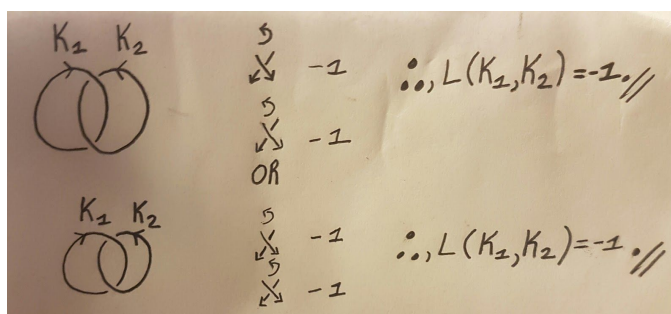 K₁ K₂
-1
∴, L(K₁,K₂)=-1.//
-1
OR
K₁ K₂
-1
∴, L(K₁,K₂)=-1.//
-1